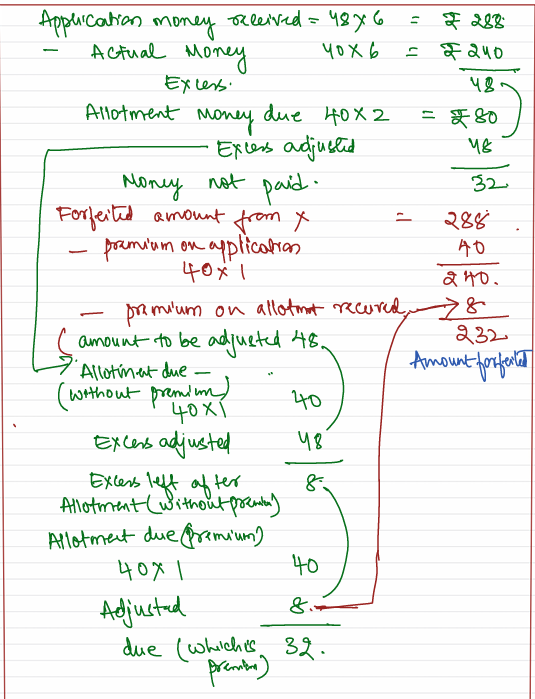 Application money received = 48 X 6 = ₹ 288
- Actual Money 40 X 6 = ₹ 240
Excess. 48
Allotment Money due 40 X 2 = ₹ 80
Excess adjusted 48
Money not paid. 32
Forfeited amount from X = 288
- premium on application 40
40 X 1 240.
- premium on allotmt received 8
( amount to be adjusted 48 232
Allotment due - Amount forfeited
(without premium)
40 X 1 40
Excess adjusted 48
Excess left after 8
Allotment (without premium)
Allotment due (premium)
40 X 1 40
Adjusted 8.
due (which is 32.
premium)